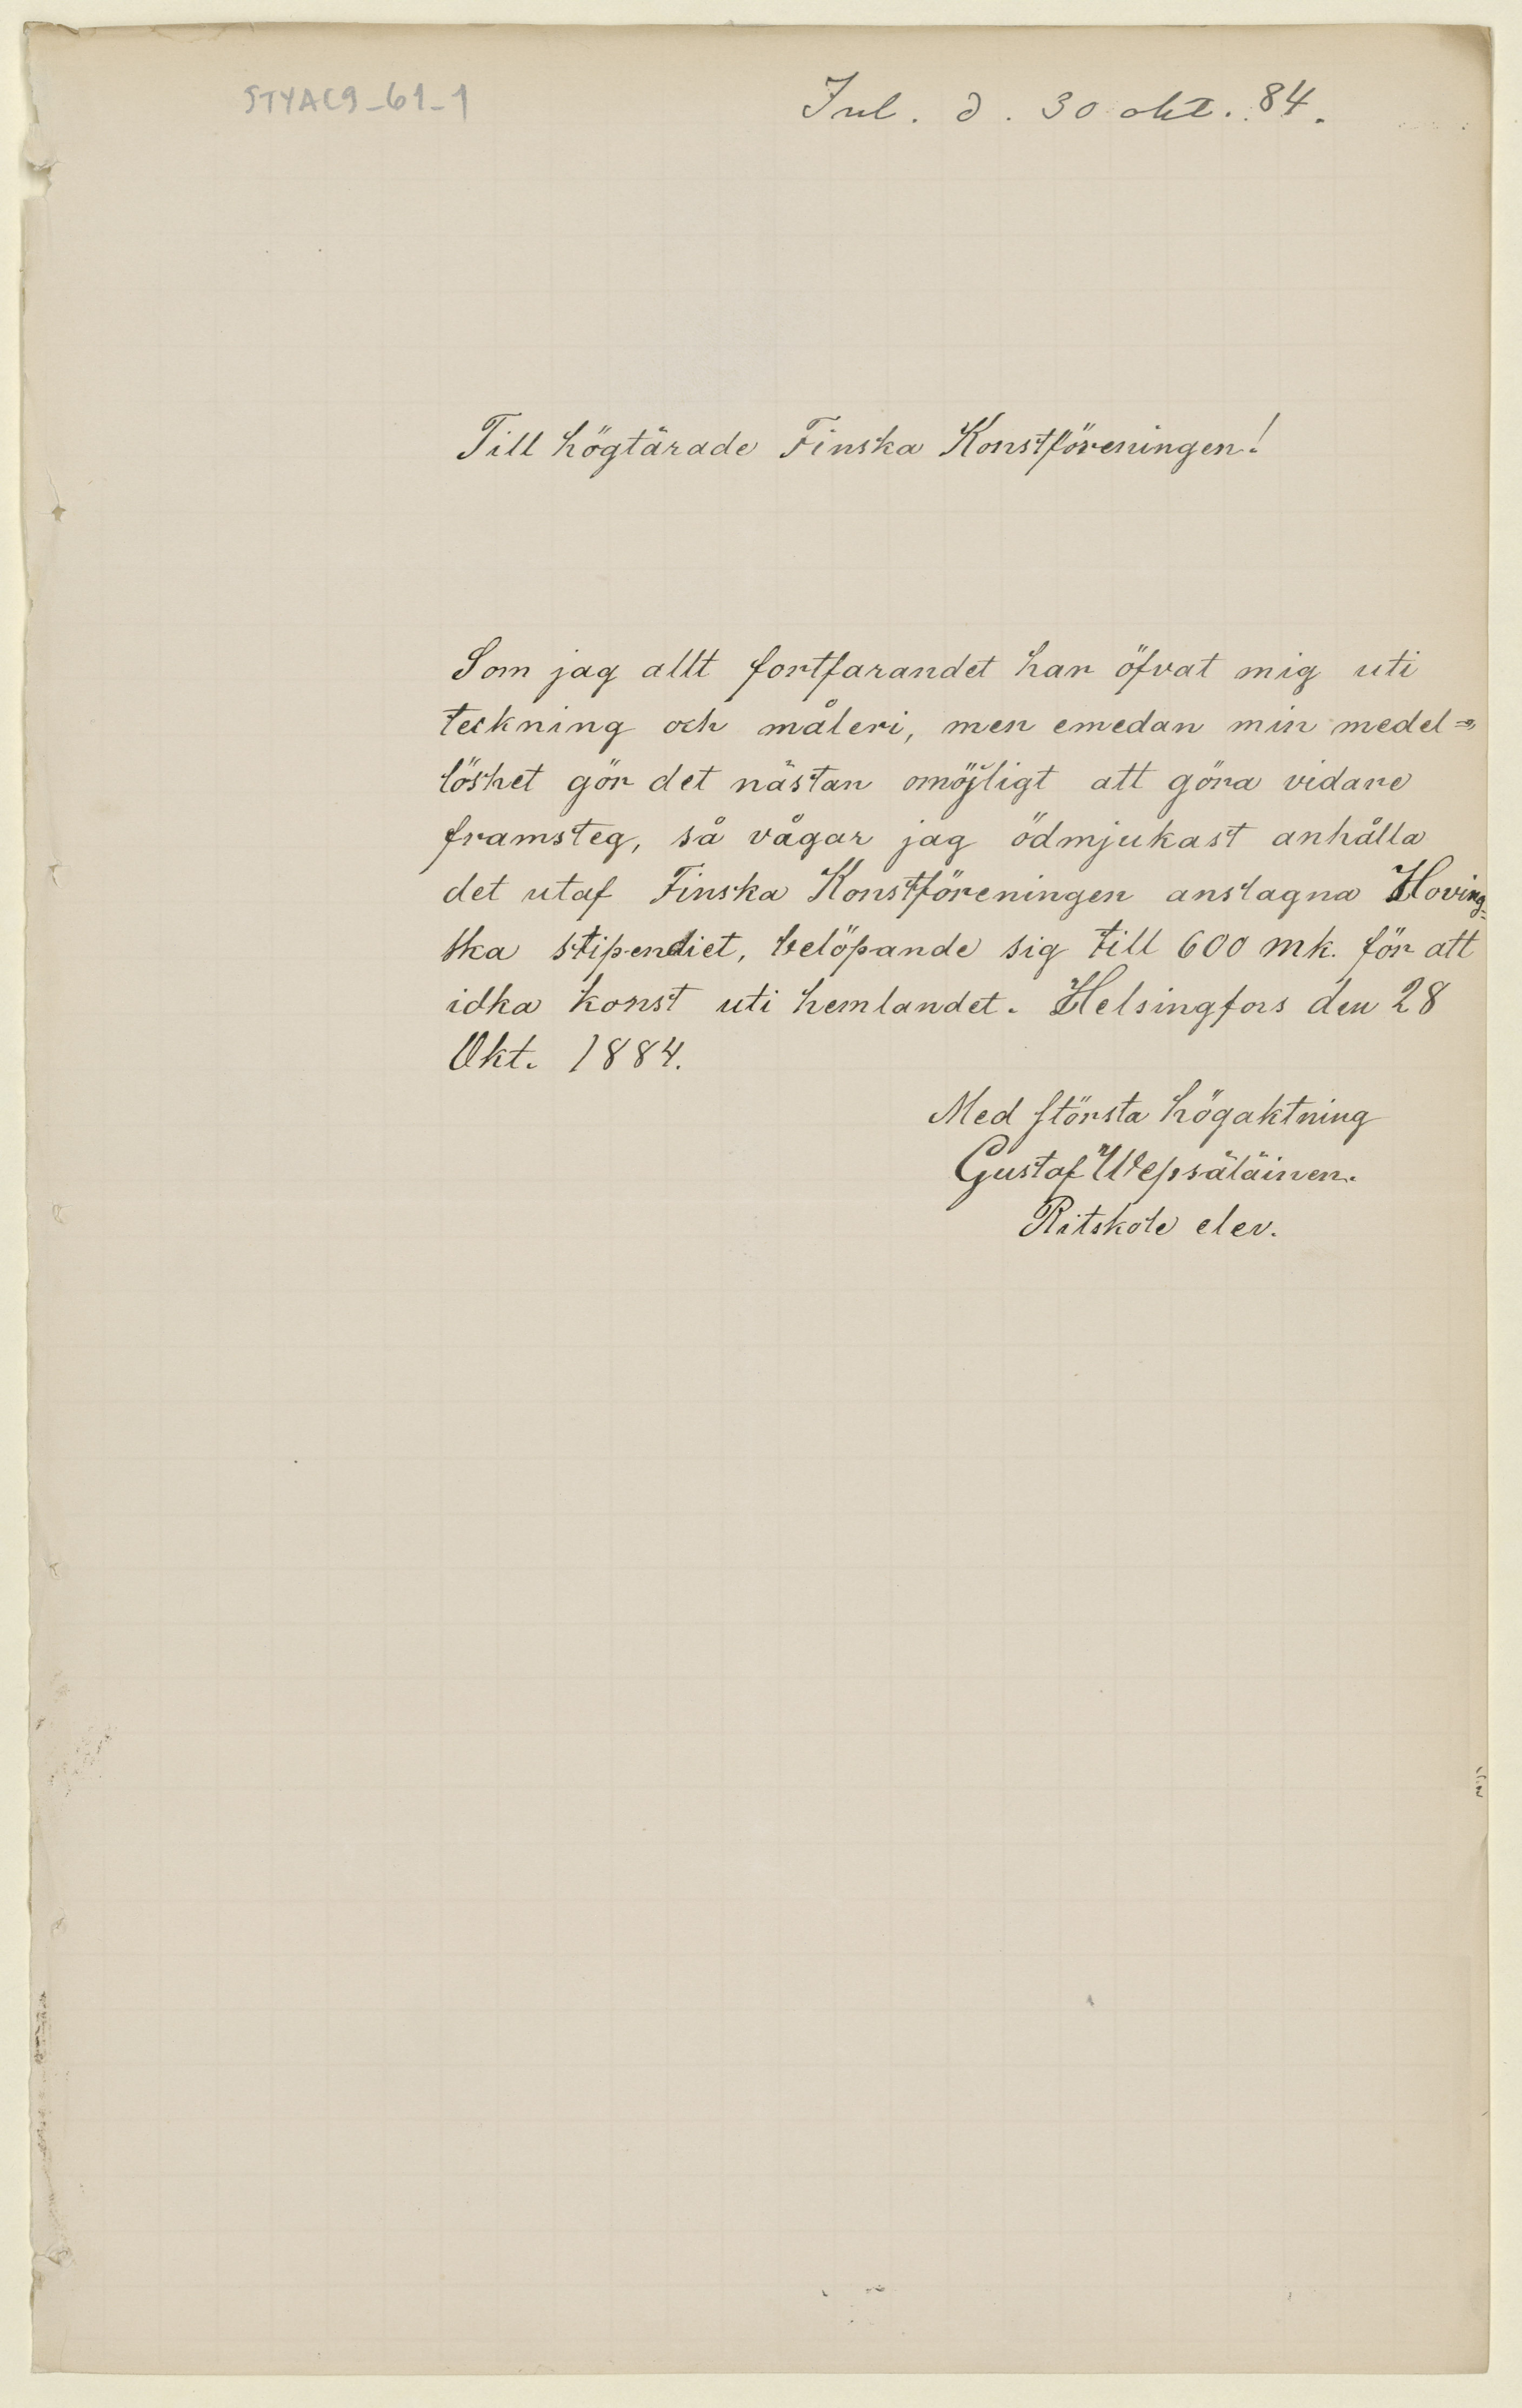 STYAC9_61_1
Inl. d. 30 okt. 84.
Till högtärade Finska Konstföreningen!
Som jag allt fortfarandet har öfvat mig uti
teckning och måleri, men emedan min medel=
löshet gör det nästan omöjligt att göra vidare
framsteg, så vågar jag ödmjukast anhålla
det utaf Finska Konstföreningen anslagna Hoving=
ska stipendiet, belöpande sig till 600 mk. för att
idka konst uti hemlandet. Helsingfors den 28
Okt. 1884.
Med största högaktning
Gustaf Wepsäläinen.
Ritskole elev.